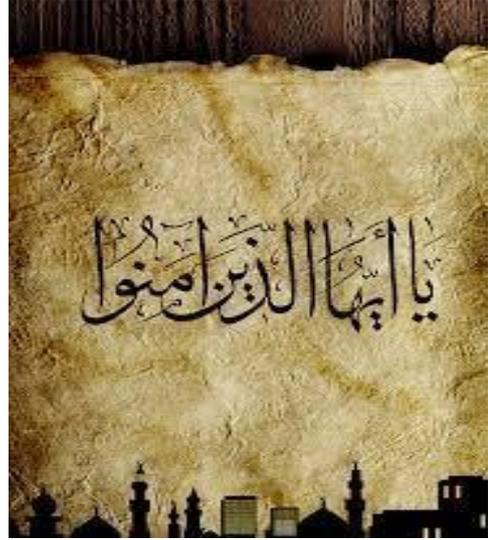 يا أَيُّهَا الَّذِينَ آمَنُوا